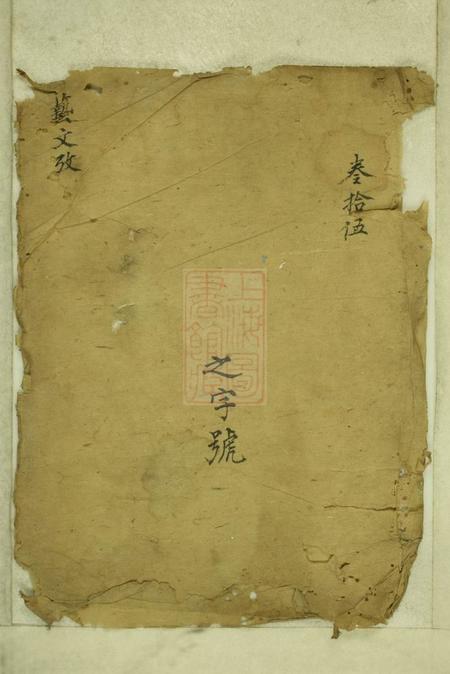 叁拾伍
上海圖
書館藏
之字號
藝文攷